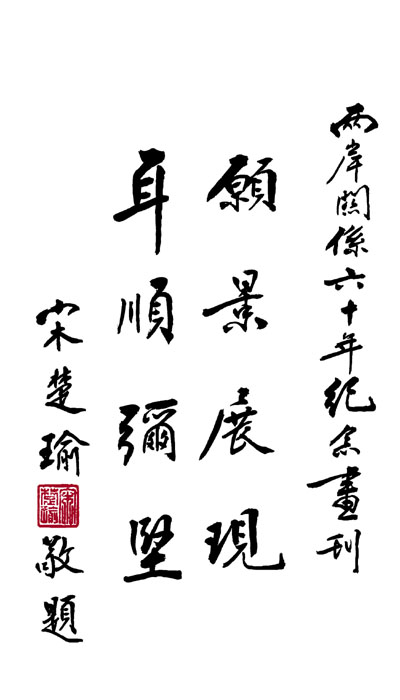 兩岸關係六十年紀念畫刊
願景展現
耳順彌堅
宋楚瑜
敬題